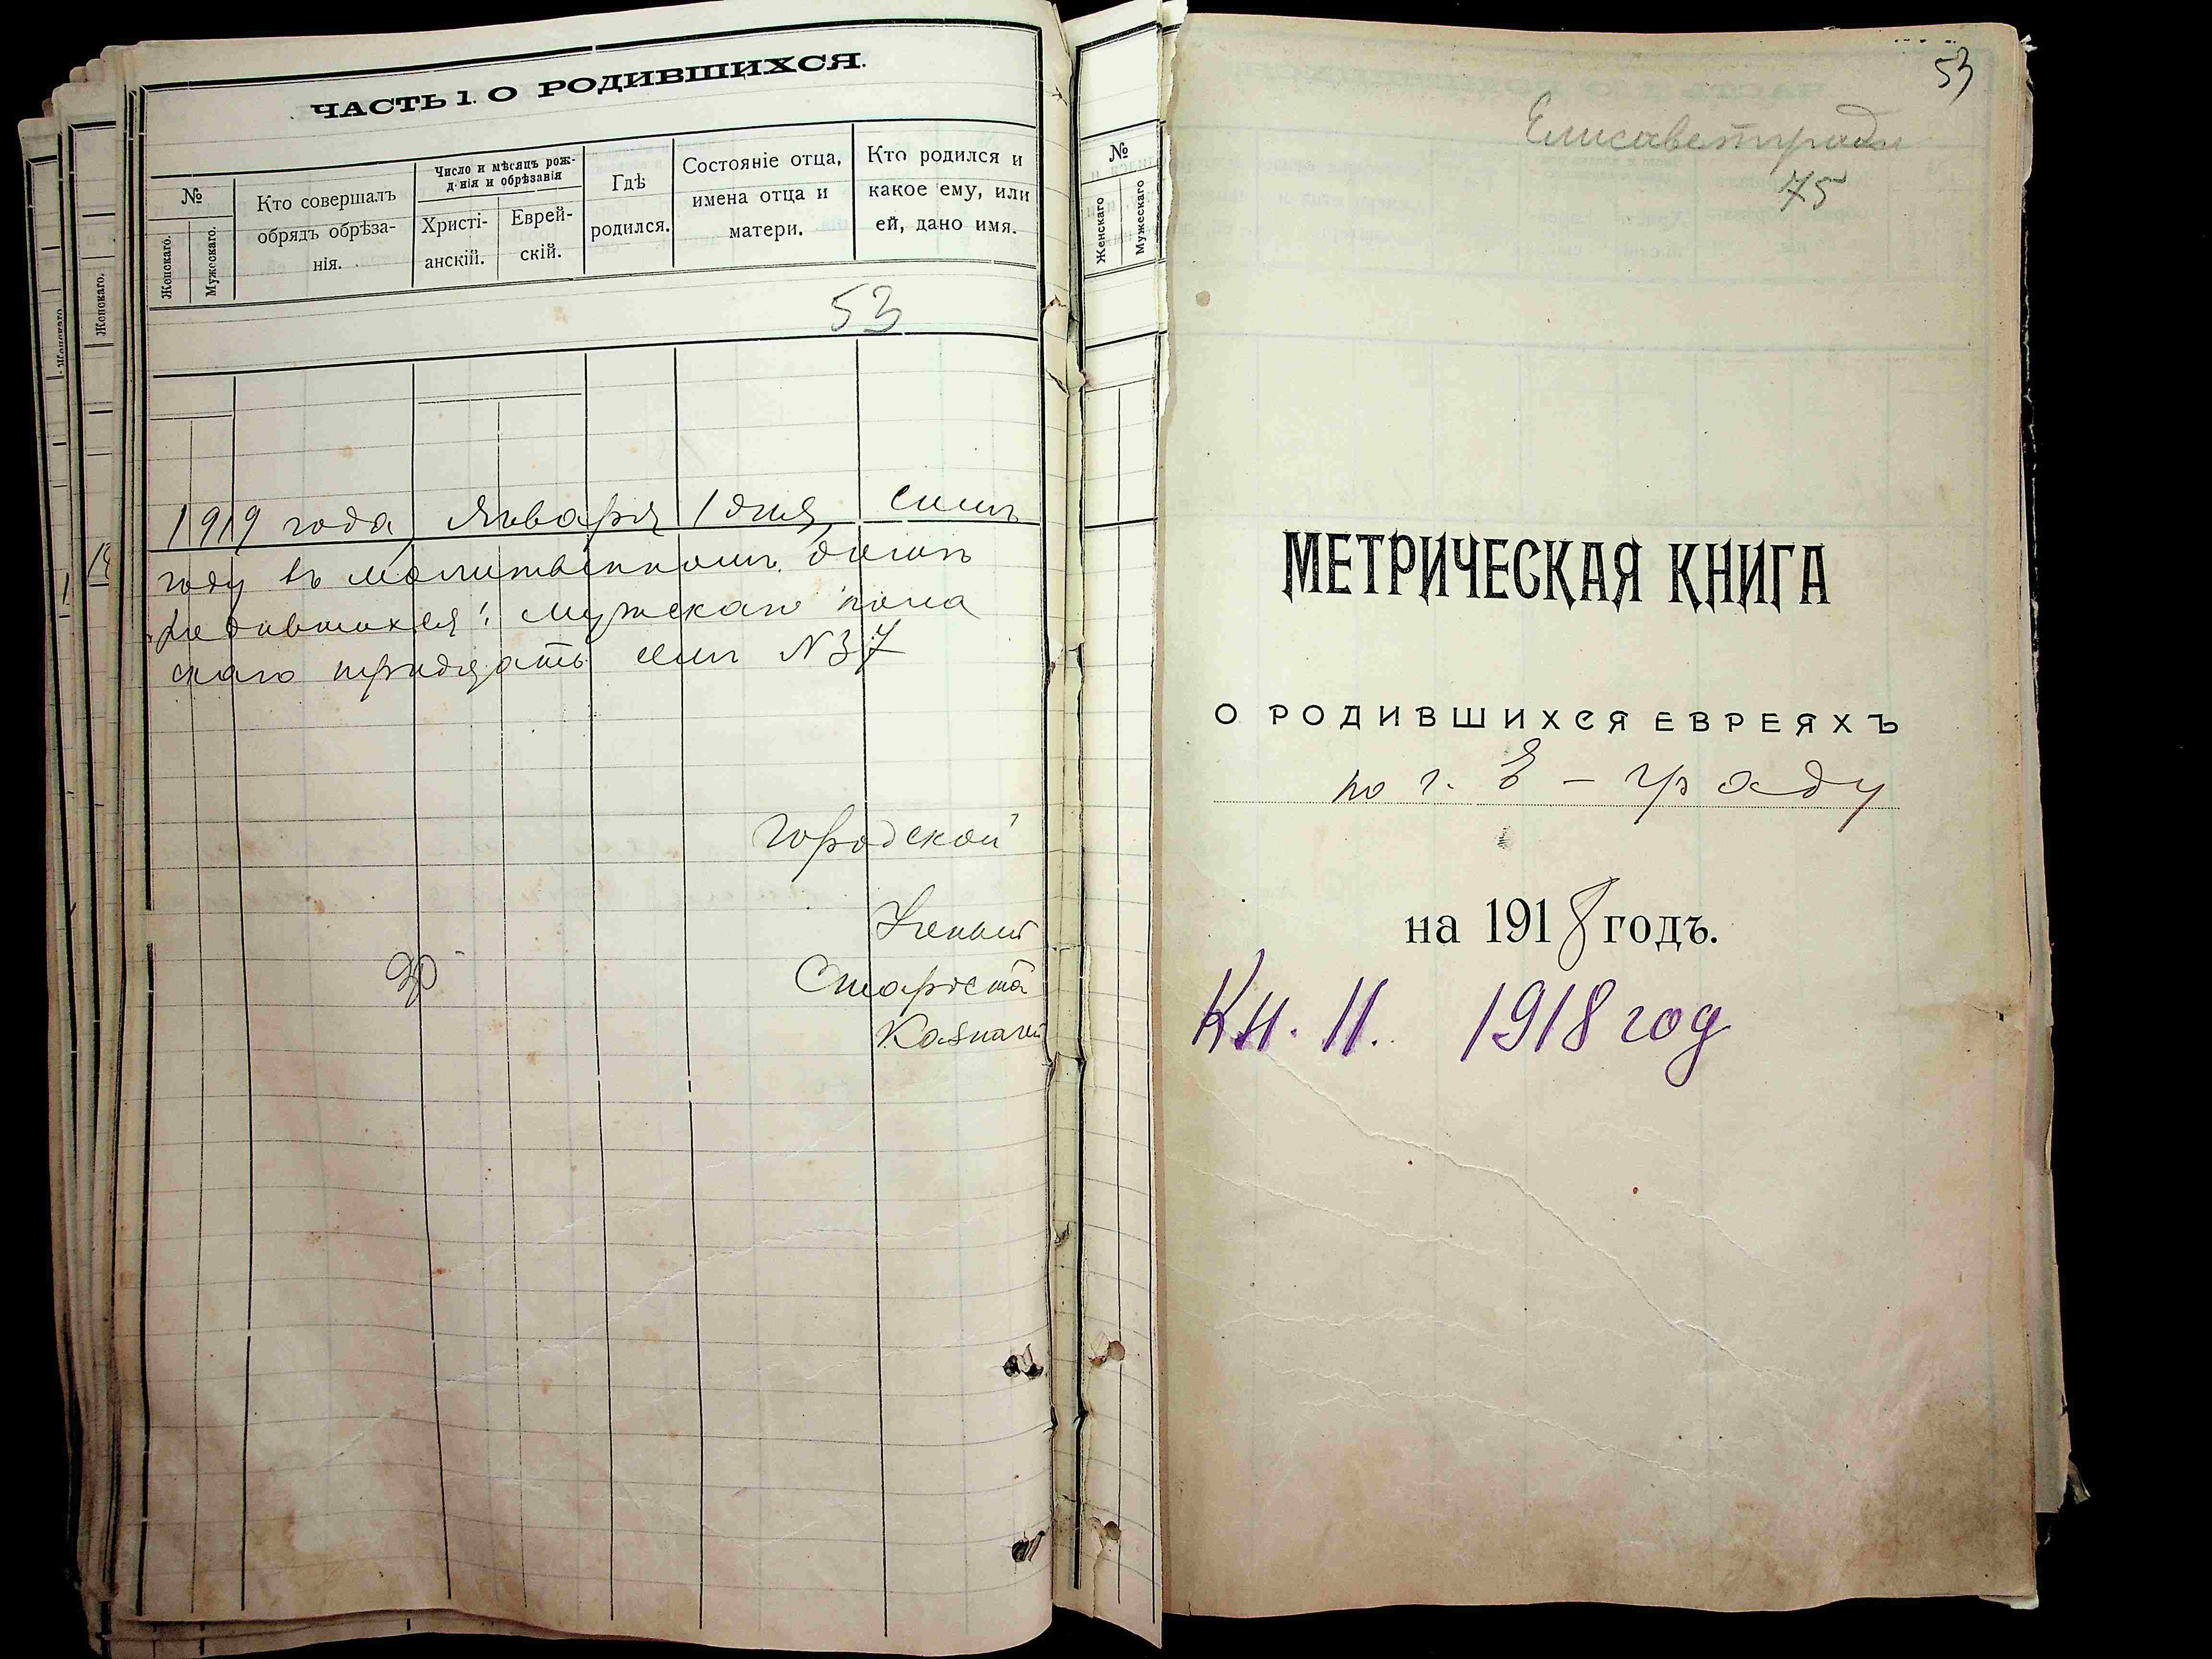 ЧАСТЬ 1. О РОДИВШИХСЯ.
№
Женскаго.
Мужескаго.
Кто совершалъ
обрядъ обрѣза-
нія.
Число и мѣсяцъ рож-
днія и обрѣзанія
Христі-
анскій.
Еврей-
скій.
Гдѣ
родился.
Состояніе отца,
имена отца и
матери.
Кто родился и
какое ему, или
ей, дано имя.
53
1919 года, Января 1 дня, симъ
году въ молитвенномъ домѣ
родившихся: мужскаго пола
скаго тридцать семь №37
Городской
Ученый
Староста
Казначей
Женскаго.
№
Женскаго
Мужескаго
53
Елисаветградъ
75
МЕТРИЧЕСКАЯ КНИГА
О РОДИВШИХСЯ ЕВРЕЯХЪ
по г. Е-граду
на 1918 годъ.
Кн. II. 1918 год